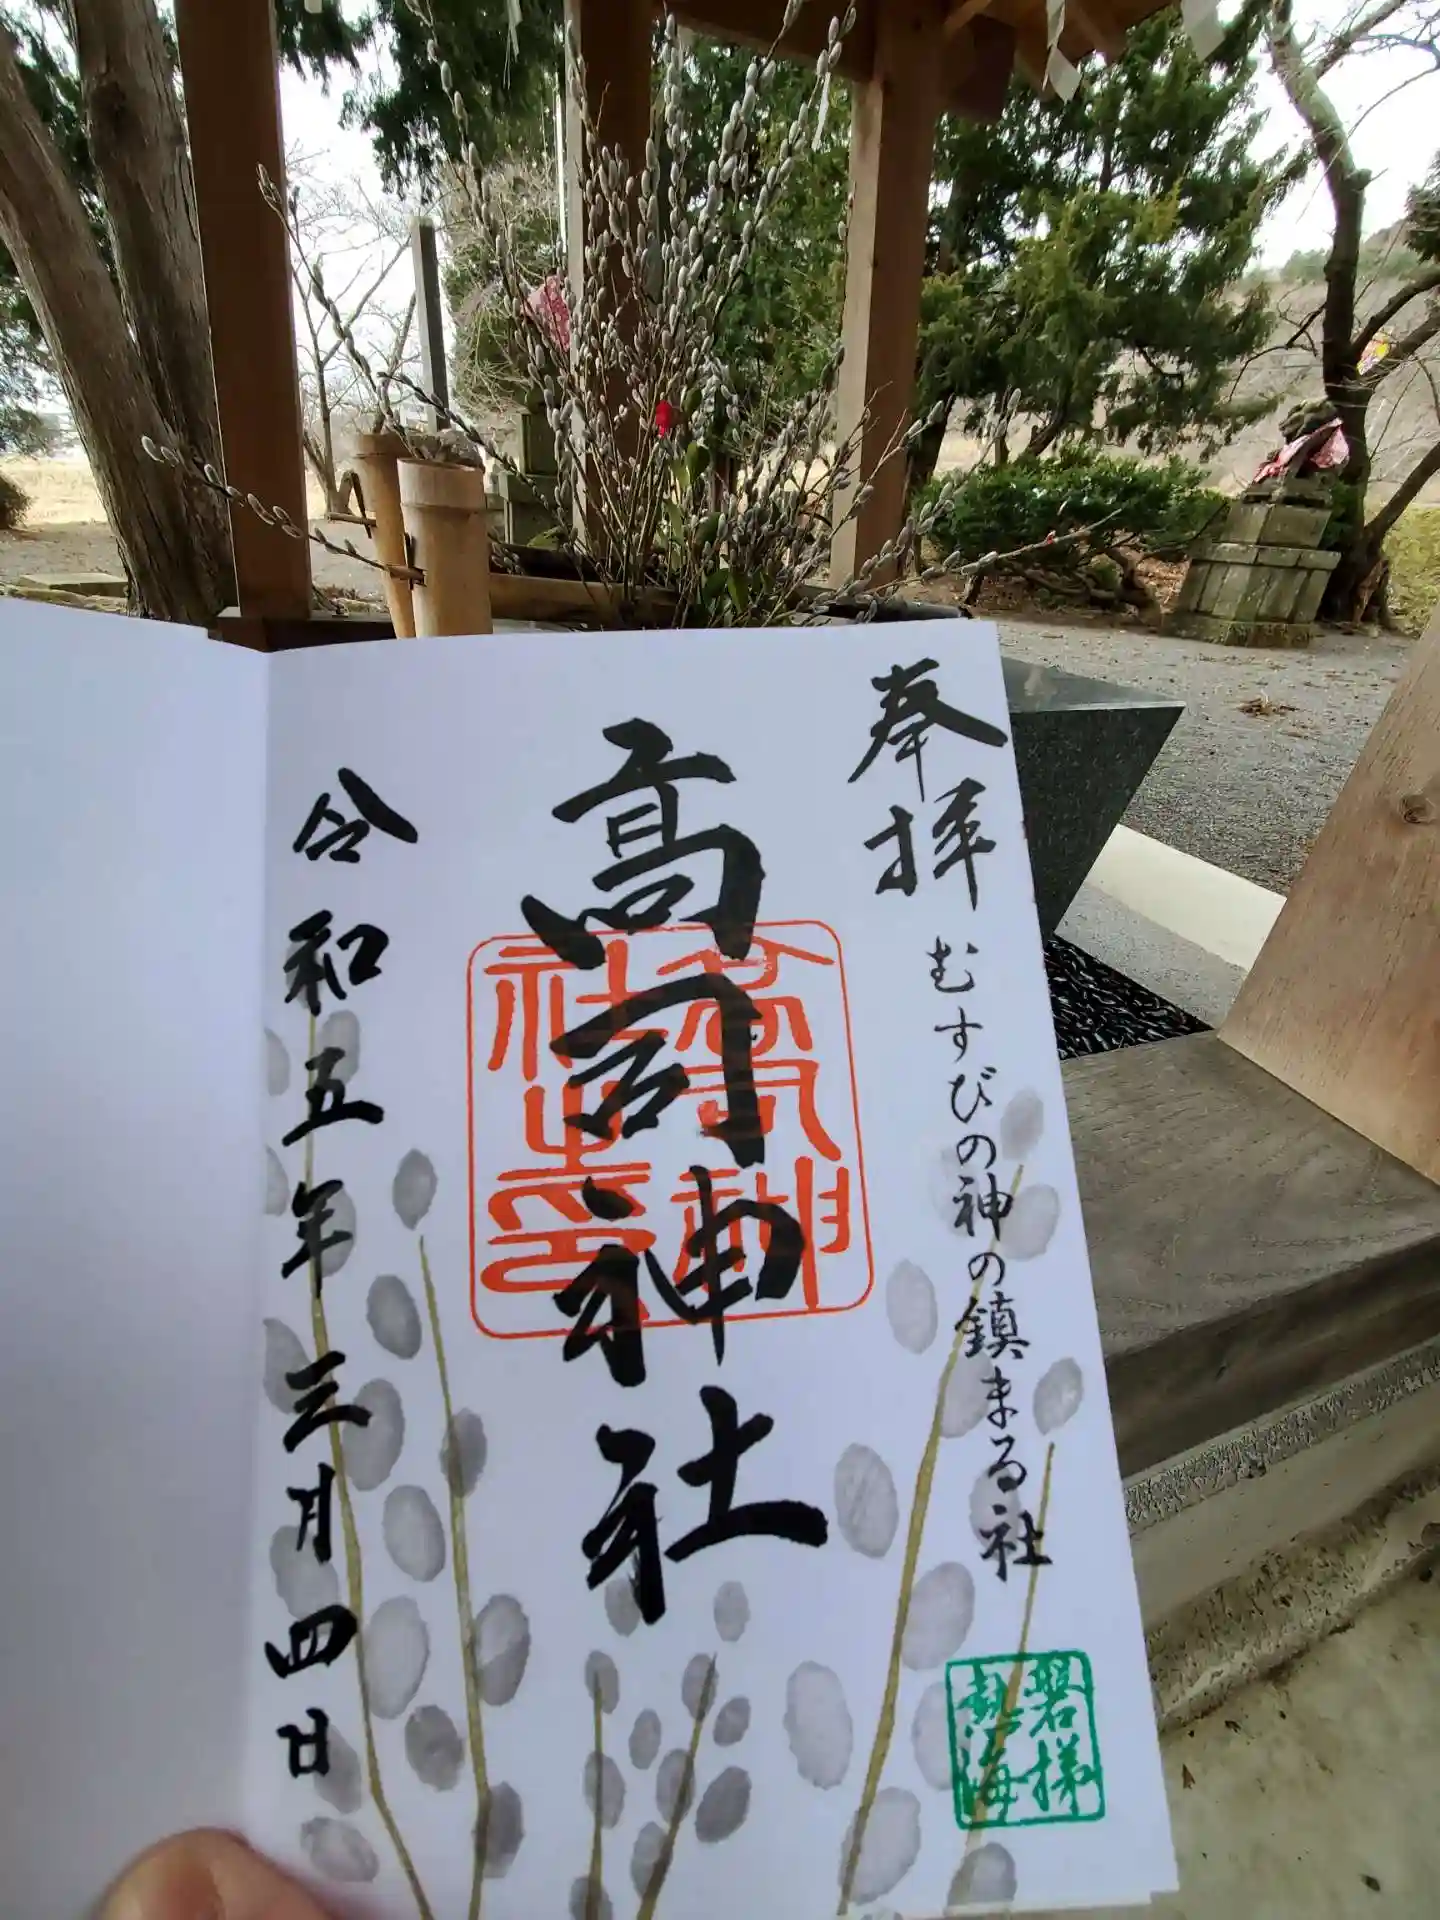 奉拝
むすびの神の鎮まる社
磐梯
熱海
高司神社
高司神
社之印
令和五年三月四日